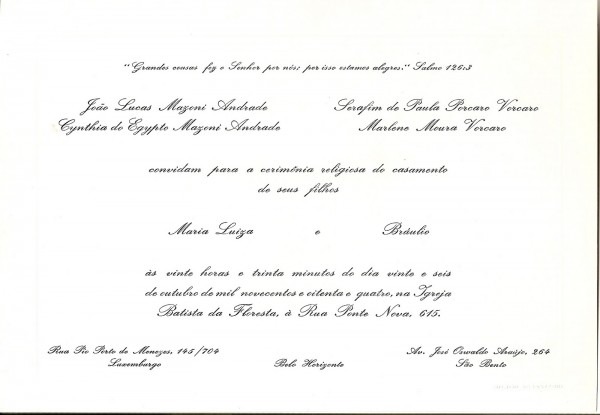 "Grandes cousas fez o Senhor por nós; por isso estamos alegres." Salmo 126:3
João Lucas Mazoni Andrade
Cynthia do Egypto Mazoni Andrade
Serafim de Paula Porcaro Vorcaro
Marlene Moura Vorcaro
convidam para a cerimônia religiosa do casamento
de seus filhos
Maria Luiza e Bráulio
às vinte horas e trinta minutos do dia vinte e seis
de outubro de mil novecentos e oitenta e quatro, na Igreja
Batista da Floresta, à Rua Ponte Nova, 615.
Rua Pio Porto de Menezes, 145/704
Luxemburgo
Belo Horizonte
Av. José Oswaldo Araújo, 264
São Bento